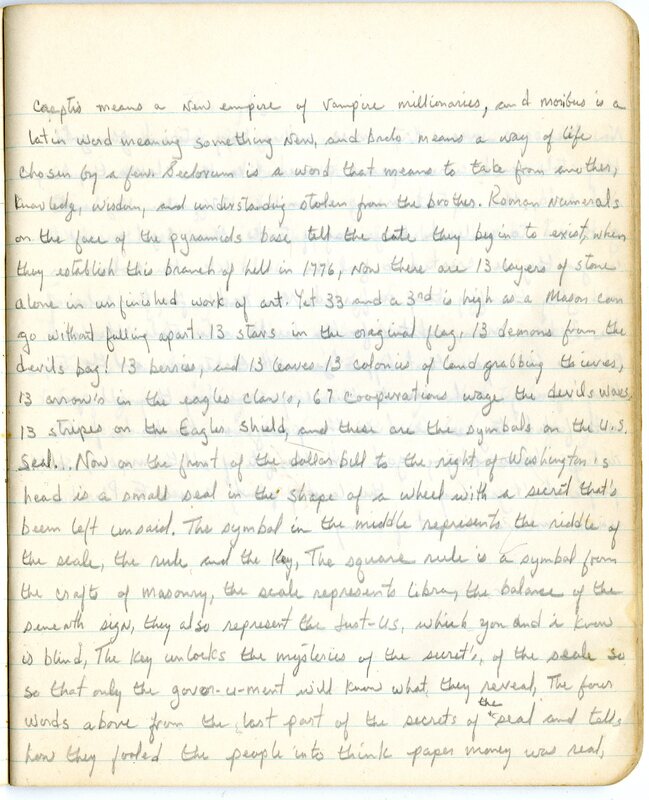 Coeptis means a New empire of Vampire millionaries, and moribus is a
Latin word meaning something New, and Ordo means a way of life
chosin by a few. Seclorum is a word that means to take from another,
knowledge, wisdom, and understanding stolen from the brother. Roman Numerals
on the face of the pyramids base tell the date they begin to exist, when
they establish this branch of hell in 1776, Now there are 13 layers of stone
alone in unfinished work of art. Yet 33 and a 3rd is high as a Mason can
go without falling apart. 13 stars in the original flag, 13 demons from the
devils bag! 13 berries, and 13 leaves 13 colonies of land grabbing thieves,
13 arrow's in the eagles claw's, 67 cooperations wage the devils wars,
13 stripes on the Eagles Shield, and these are the symbols on the U.S.
Seal... Now on the front of the dollar bill to the right of Washington's
head is a small seal in the shape of a wheel with a secret that's
beem left unsaid. The symbol in the middle represents the riddle of
the scale, the rule and the Key, The square rule is a symbol from
the crafts of masonry, the scale represents libra, the balance of the
seventh sign, they also represent the Just-Us, which you and i know
is blind, The Key unlocks the mysteries of the secret's, of the scale so
so that only the gover-u-ment will know what they reveal, The four
words above from the last part of the secrets of the seal and tells
how they fooled the people into think paper money was real,